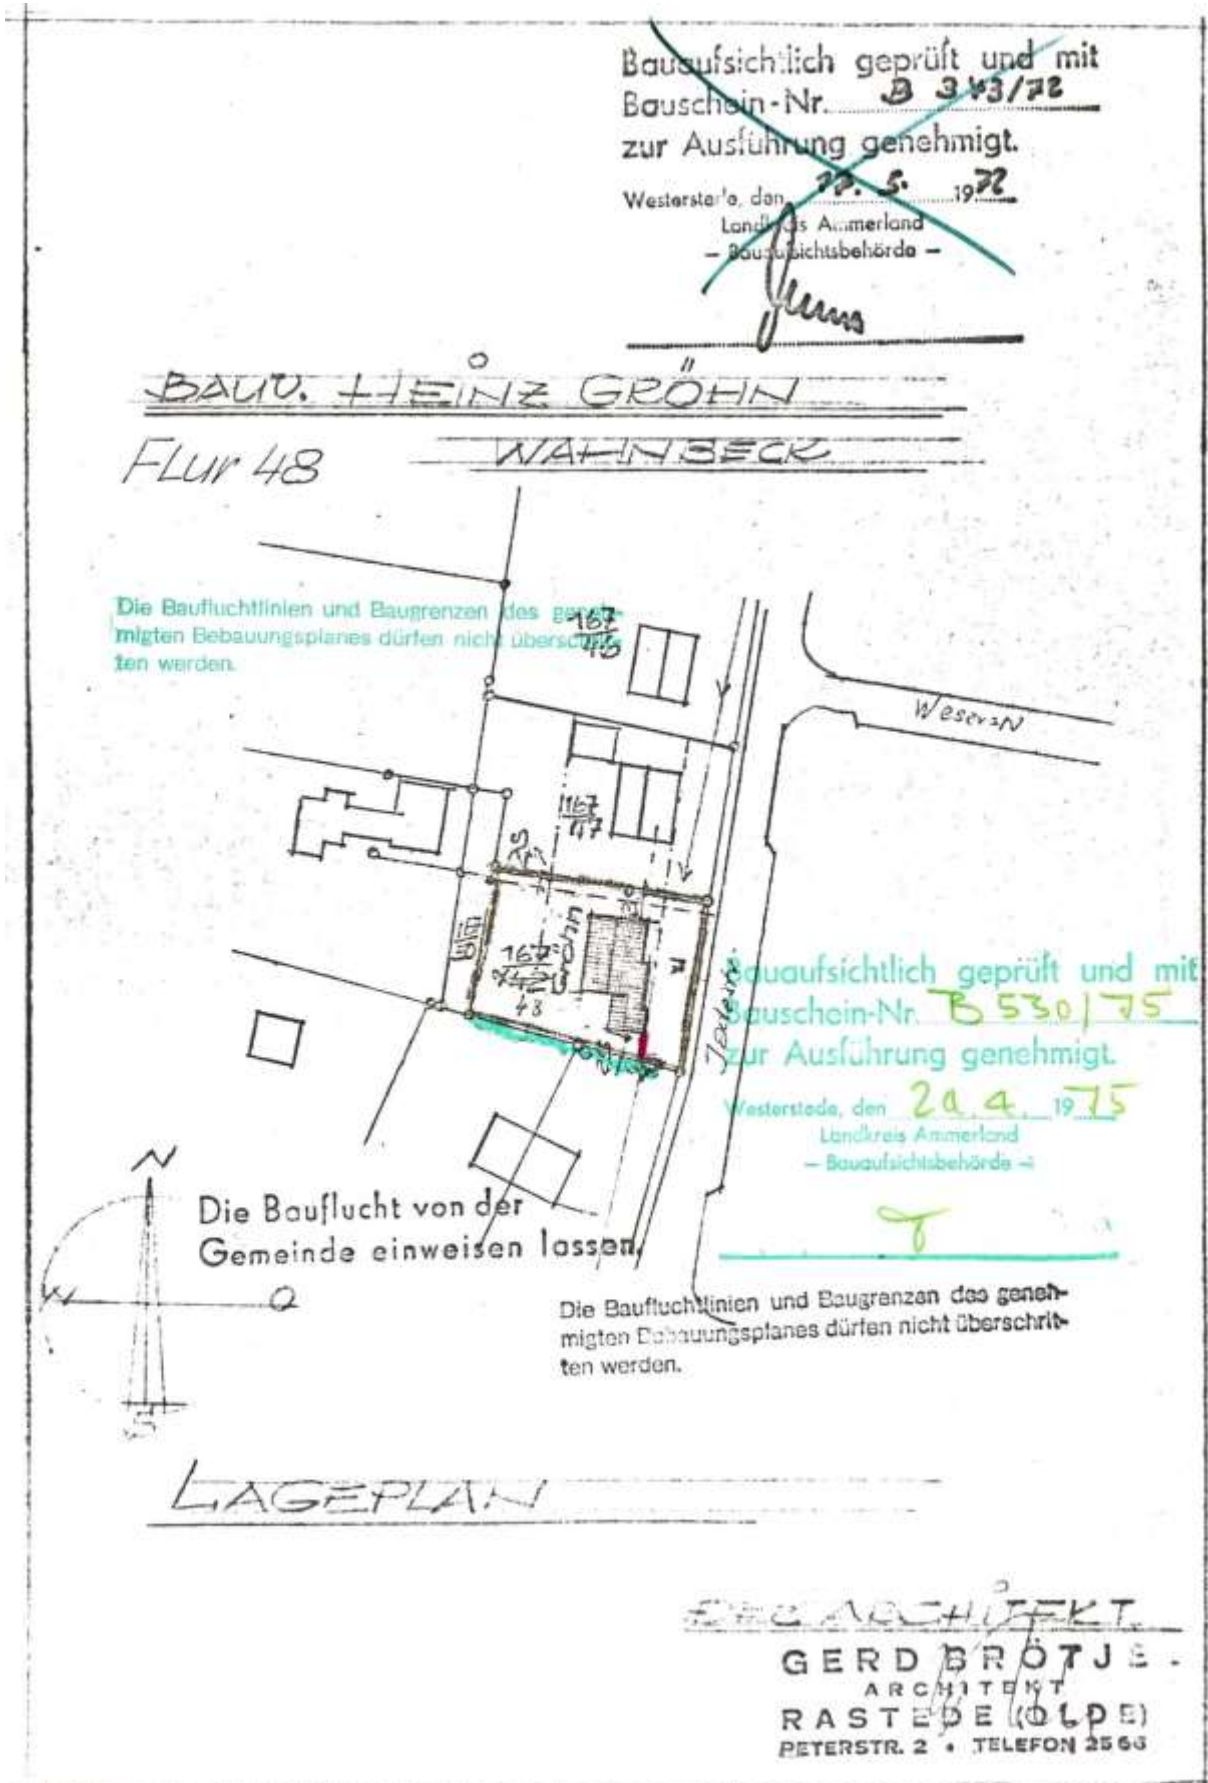 Bauaufsichtlich geprüft und mit
Bauschein-Nr. B 343/72
zur Ausführung genehmigt.
Westerstede, den 17. 5. 1972
Landkreis Ammerland
– Bauaufsichtsbehörde –
BAUV. HEINZ GRÖHN
FLur 48 WAHNBECK
Die Baufluchtlinien und Baugrenzen des geneh-
migten Bebauungsplanes dürfen nicht überschrit-
ten werden.
167
46
Weser
167
47
Gröhn
167
48
Bauaufsichtlich geprüft und mit
Bauschein-Nr. B 530/75
zur Ausführung genehmigt.
Westerstede, den 29. 4. 1975
Landkreis Ammerland
– Bauaufsichtsbehörde –
N
Die Bauflucht von der
Gemeinde einweisen lassen.
W O
S
Die Baufluchtlinien und Baugrenzen des geneh-
migten Bebauungsplanes dürfen nicht überschrit-
ten werden.
LAGEPLAN
DER ARCHITEKT.
GERD BRÖTJE
ARCHITEKT
RASTEDE (OLDE)
PETERSTR. 2 • TELEFON 2566